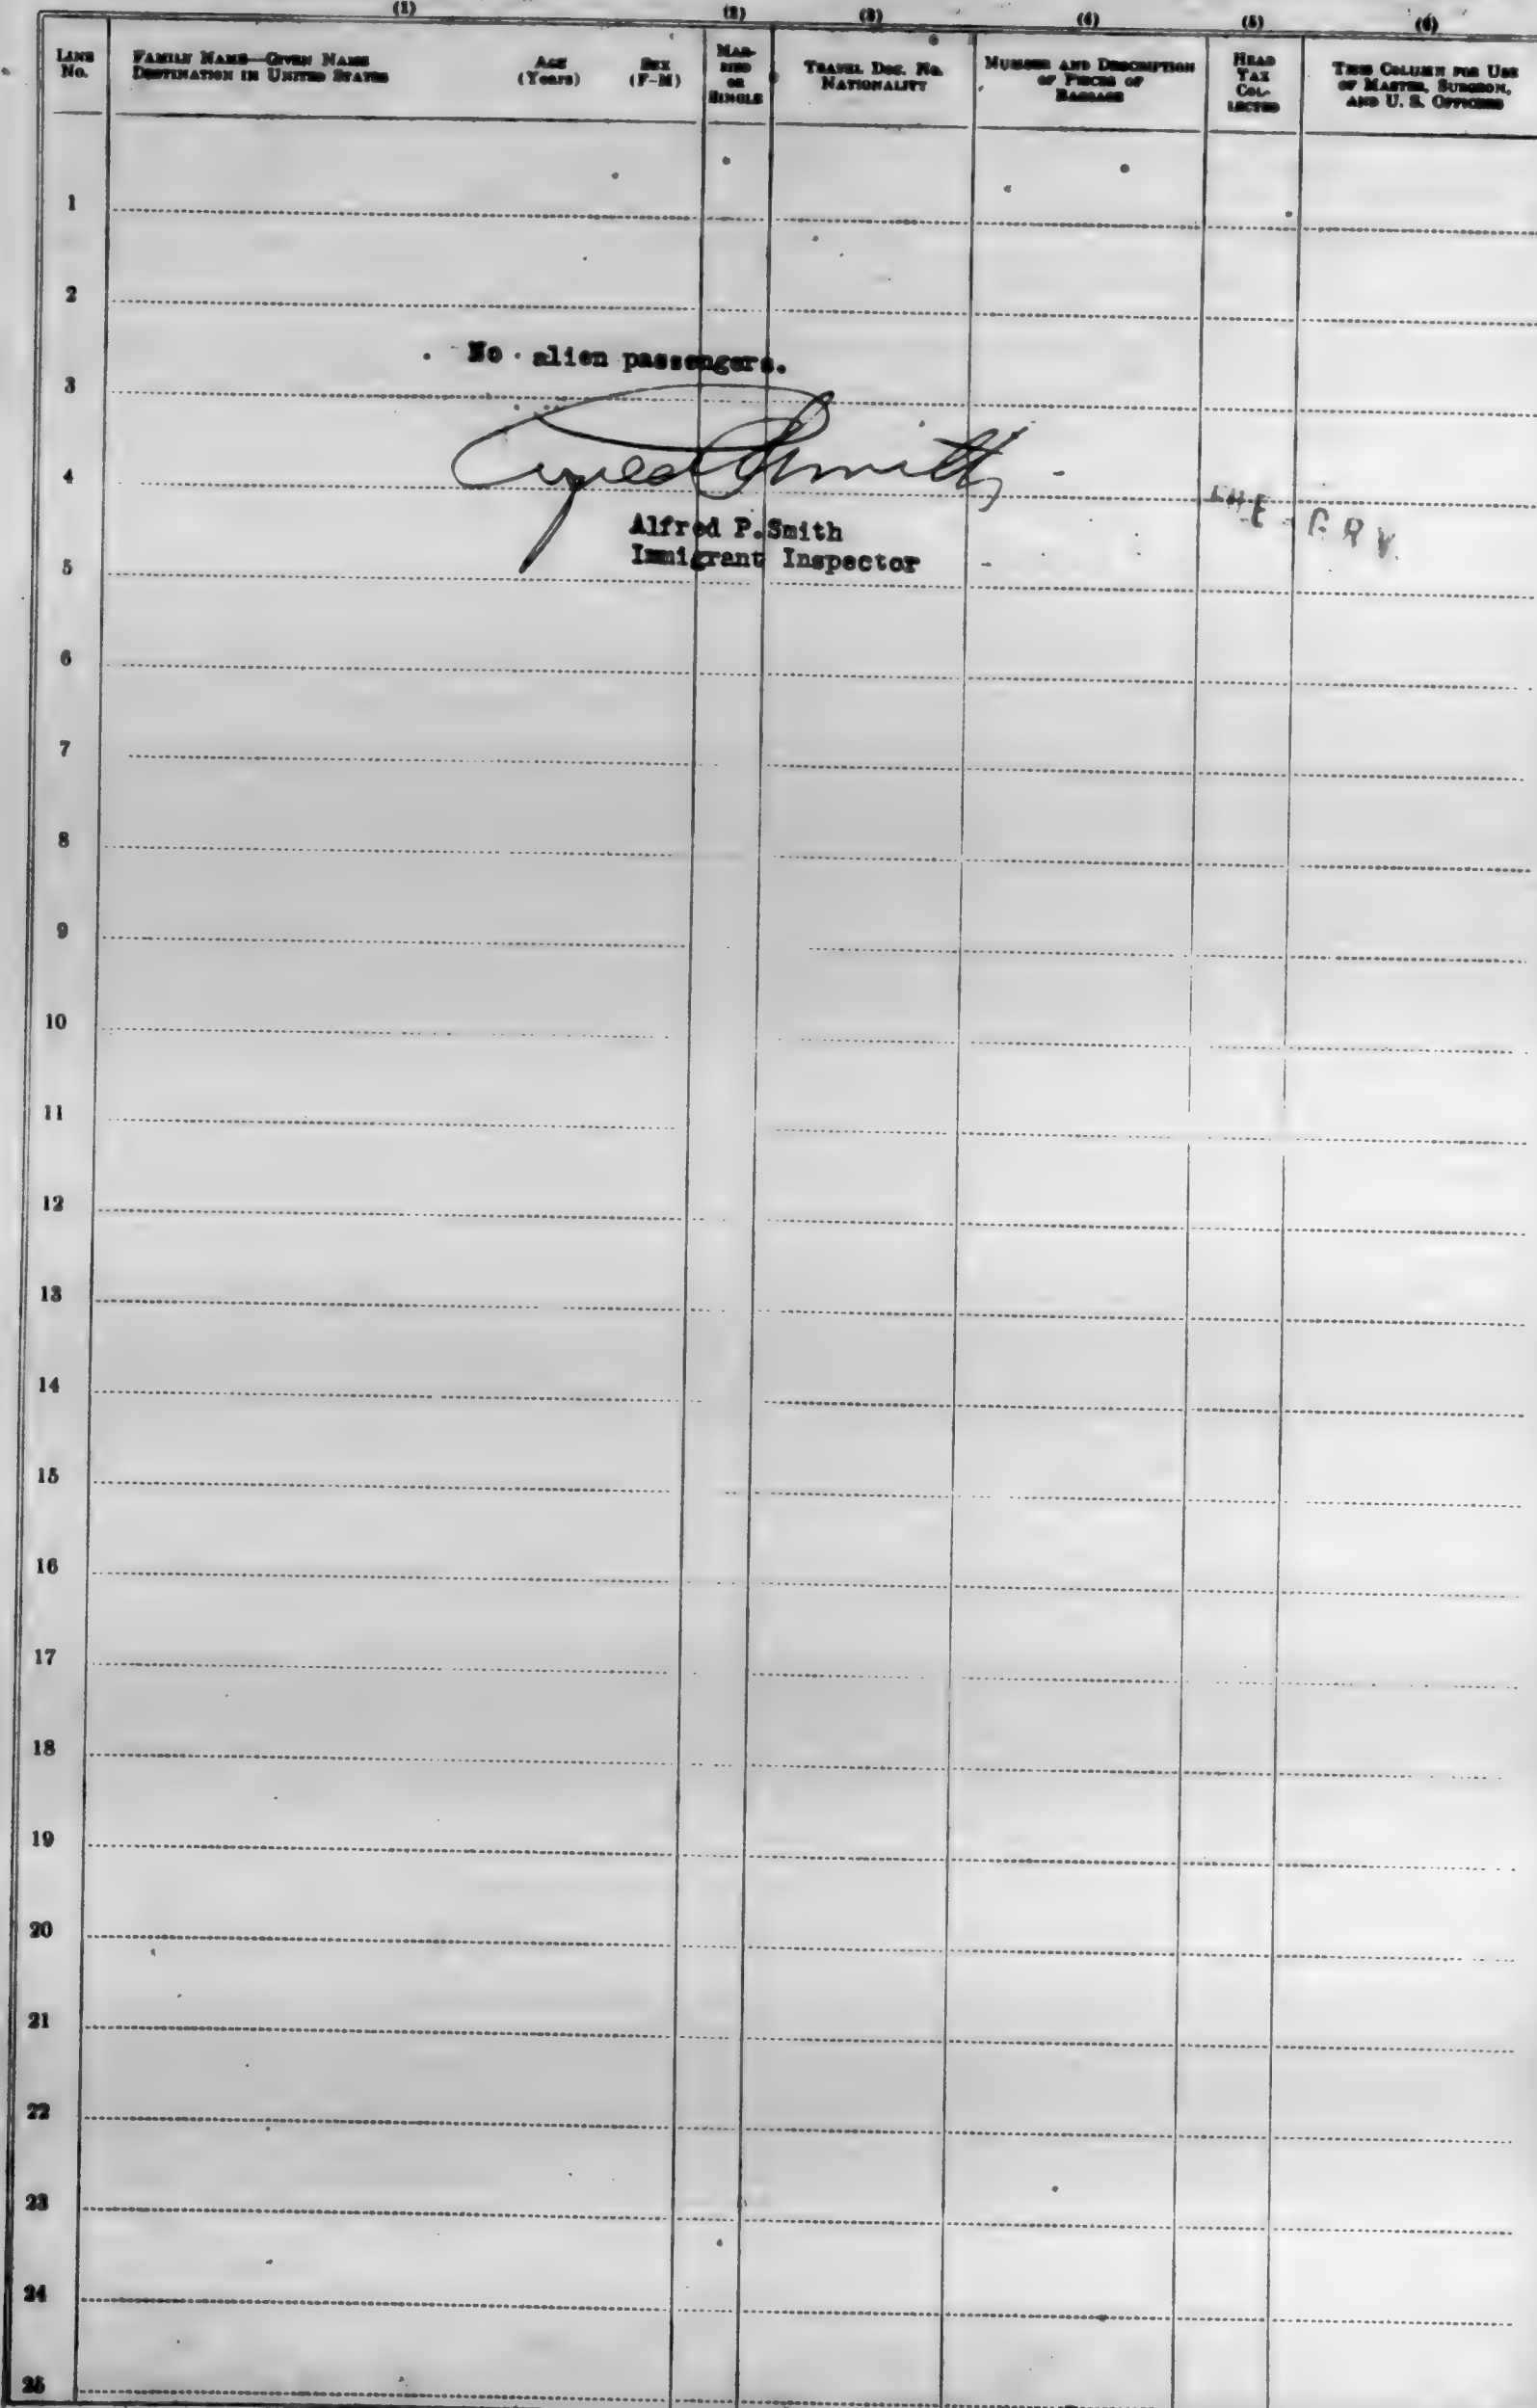 (1) (2) (3) (4) (5) (6)
LINE No.
FAMILY NAME—GIVEN NAME
DESTINATION IN UNITED STATES
AGE (Years)
SEX (F-M)
MARRIED OR SINGLE
TRAVEL DOC. No.
NATIONALITY
NUMBER AND DESCRIPTION
OF PIECES OF
BAGGAGE
HEAD
TAX
COL-
LECTED
THIS COLUMN FOR USE
OF MASTER, SURGEON,
AND U. S. OFFICERS
1
2
No alien passengers.
3
Alfred P Smith
4
Alfred P.Smith
Immigrant Inspector
5
6
7
8
9
10
11
12
13
14
15
16
17
18
19
20
21
22
23
24
25